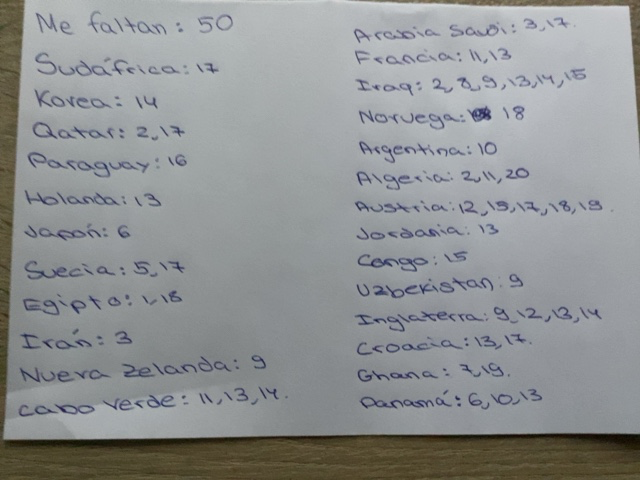 Me faltan: 50
Sudáfrica: 17
Korea: 14
Qatar: 2,17
Paraguay: 16
Holanda: 13
Japón: 6
Suecia: 5,17
Egipto: 1,18
Irán: 3
Nueva Zelanda: 9
Cabo Verde: 11,13,14.
Arabia Saudi: 3,17.
Francia: 11,13
Iraq: 2,8,9,13,14,15
Noruega: 18
Argentina: 10
Algeria: 2,11,20
Austria: 12,15,17,18,19.
Jordania: 13
Congo: 15
Uzbekistan: 9
Inglaterra: 9,12,13,14
Croacia: 13,17.
Ghana: 7,19.
Panamá: 6,10,13